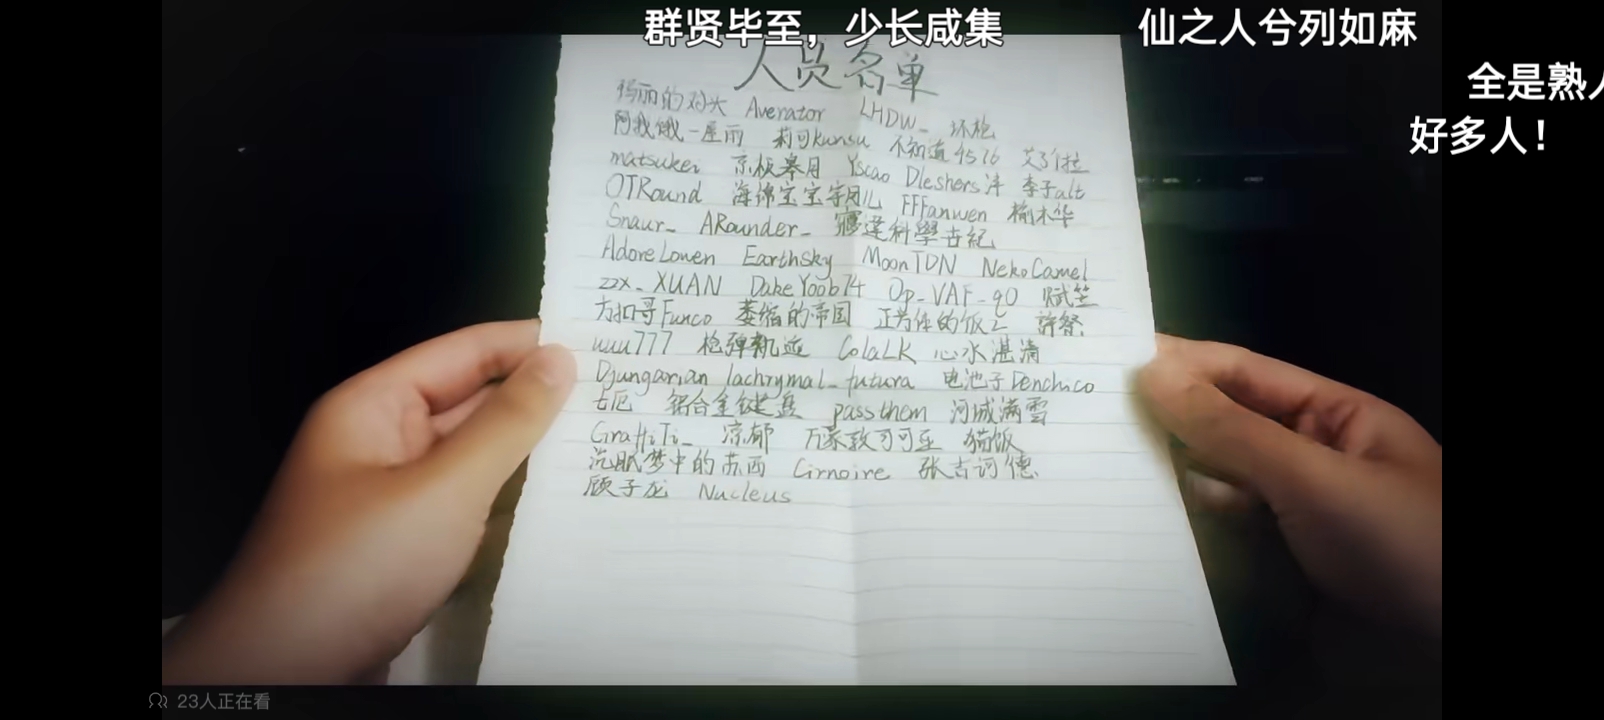 群贤毕至，少长咸集
仙之人兮列如麻
全是熟人
好多人！
人员名单
玛丽的对头 Averator LHDW_ 坏枪
阿我饿一屋雨 莉可Kunsu 不知道4576 艾尔拉
matsukei 京极皋月 Yscao Dleshers洋 李子alt
OTRound 海绵宝宝宇团儿 FFFanwen 榆木华
Snaur_ ARounder_ 寢達科學世紀
AdoreLowen Earthsky MoonTDN NekoCamel
zzx_XUAN DakeYoob74 Op_VAF_90 赋笙
方扣哥Funco 萎缩的帝国 正方体的饭之
wuu777 枪弹轨迹 ColaLK 心水湛清
Djungarian lachrymal_futura 电池子Denchico
七厄 铝合金键盘 passthem 河城满雪
GraffiTi_ 凉郁 万家致可可亚 猫饭
沉眠梦中的苏西 Cirnoire 张吉诃德
顾子龙 Nucleus
23人正在看